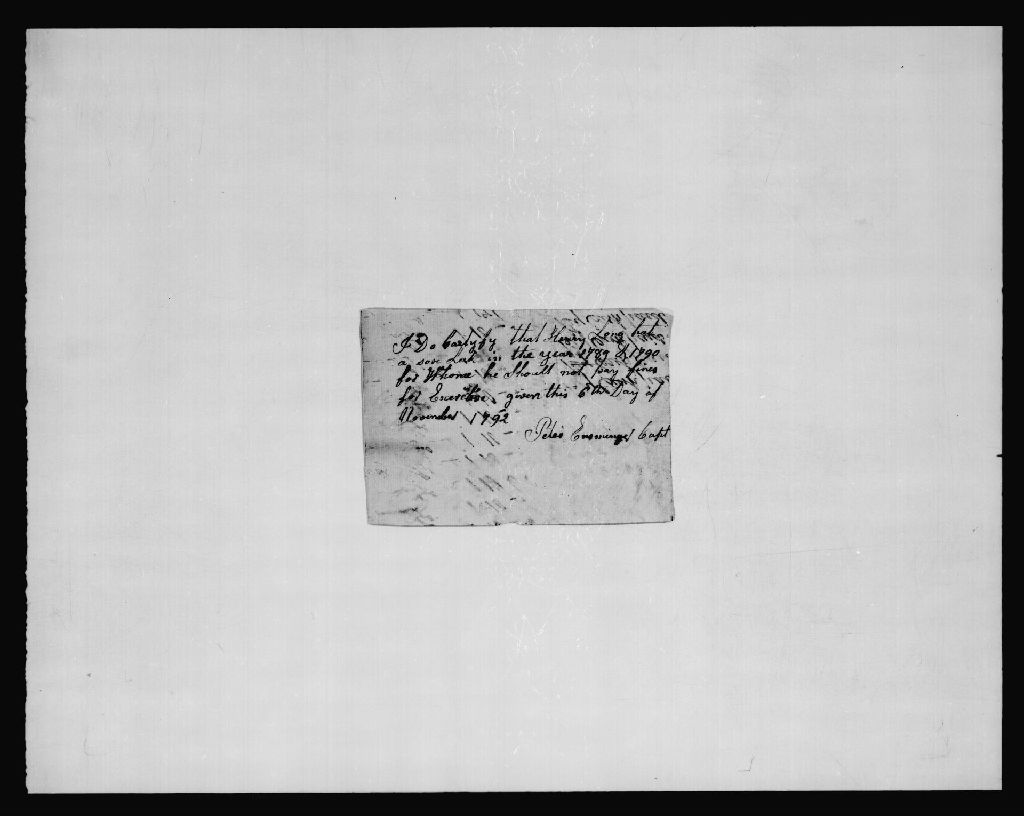 I Do Cartyfy that Henry Long had
a sore Leek in the year 1789 & 1790
for Whome he Should not pay fines
for Exercise, given this 6th Day of
November 1792
Peter Ensminger Capt